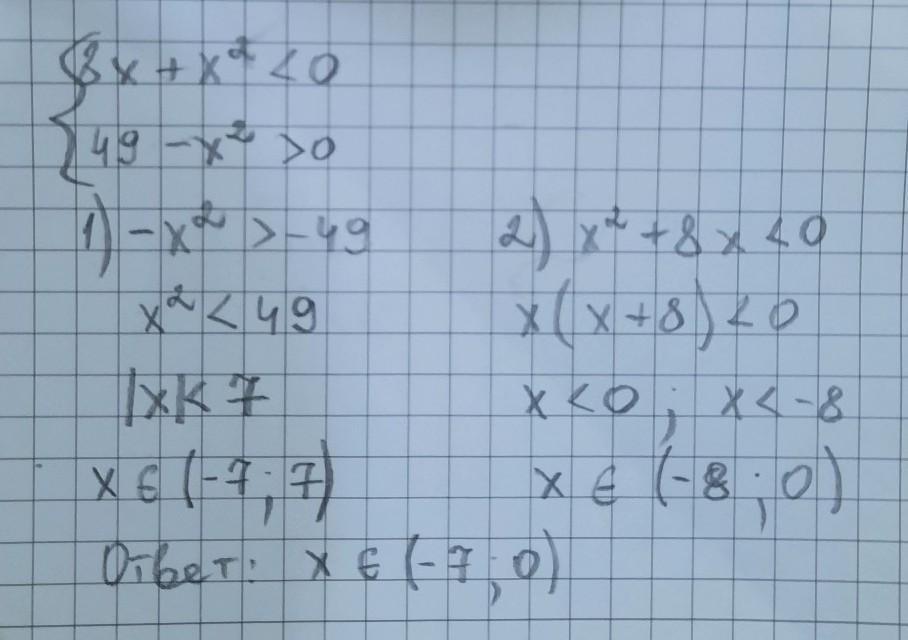 {8x + x² < 0
{49 - x² > 0
1) -x² > -49
x² < 49
|x| < 7
x ∈ (-7; 7)
2) x² + 8x < 0
x(x+8) < 0
x < 0; x < -8
x ∈ (-8; 0)
Ответ: x ∈ (-7; 0)